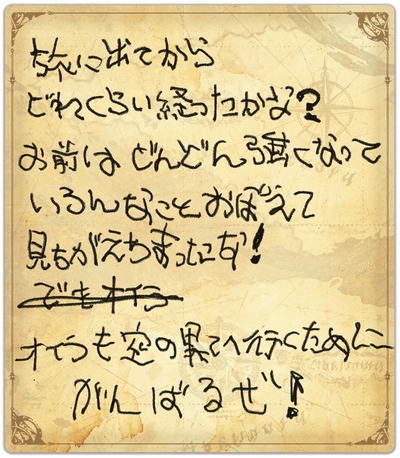 旅に出てから
どれくらい経ったかな？
お前は どんどん強くなって
いろんなことおぼえて
見ちがえちまったな！
でもオイラ
オイラも空の果てへ行くために
がんばるぜ！